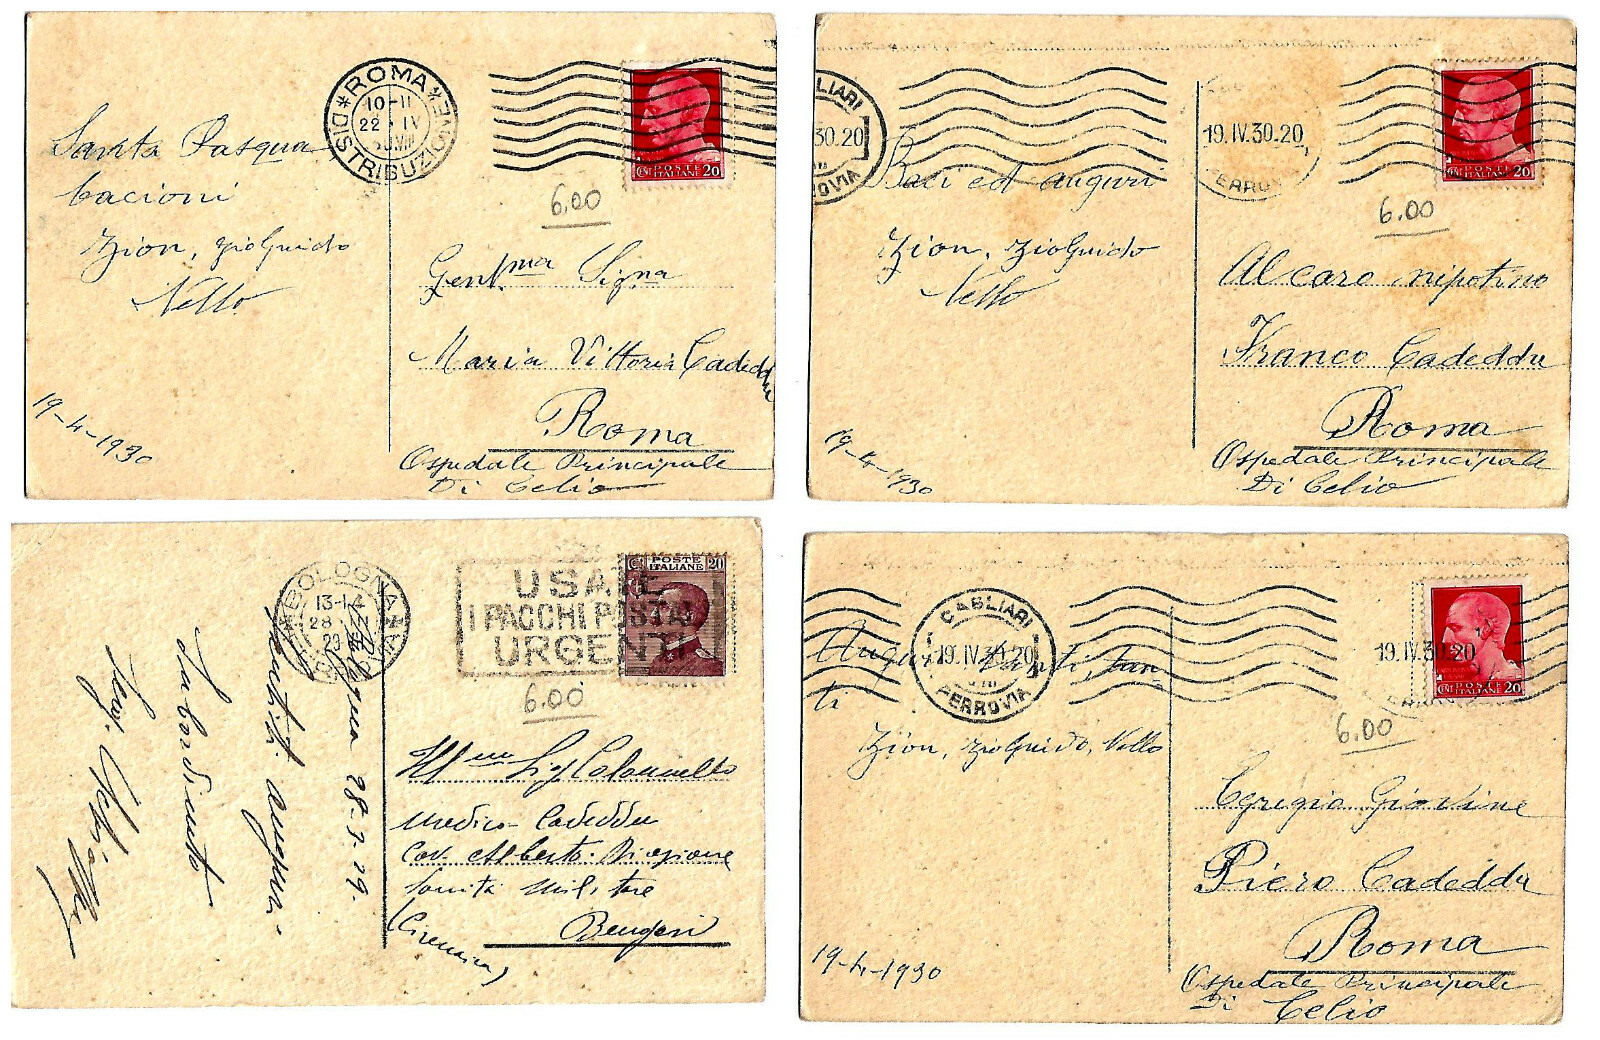 ROMA
DISTRIBUZIONE
10-11
22 IV
POSTE
ITALIANE
CENT 20
6.00
Santa Pasqua
bacioni
Zion, zio Guido
Nello
19-4-1930
Gent.ma Sig.na
Maria Vittoria Cadeddu
Roma
Ospedale Principale
Di Celio
19.IV.30.20
POSTE
ITALIANE
20
6.00
Baci ed auguri
Zion, zio Guido
Nello
19-4-1930
Al caro nipotino
Franco Cadeddu
Roma
Ospedale Principale
Di Celio
BOLOGNA
13-14
28
29
USATE
I PACCHI POSTALI
URGENTI
POSTE
ITALIANE
20
6.00
28-3-29
auguri
Ill.mo Sig. Colonnello
medico Cadeddu
Cav. Alberto Direzione
Sanità Militare
Bengasi
(Cirenaica)
CAGLIARI
19.IV.30.20
FERROVIA
19.IV.30.20
POSTE
ITALIANE
CENT 20
6.00
Auguri tanti, tan
ti
Zion, zio Guido, Nello
19-4-1930
Egregio Giovine
Piero Cadeddu
Roma
Ospedale Principale
Di Celio